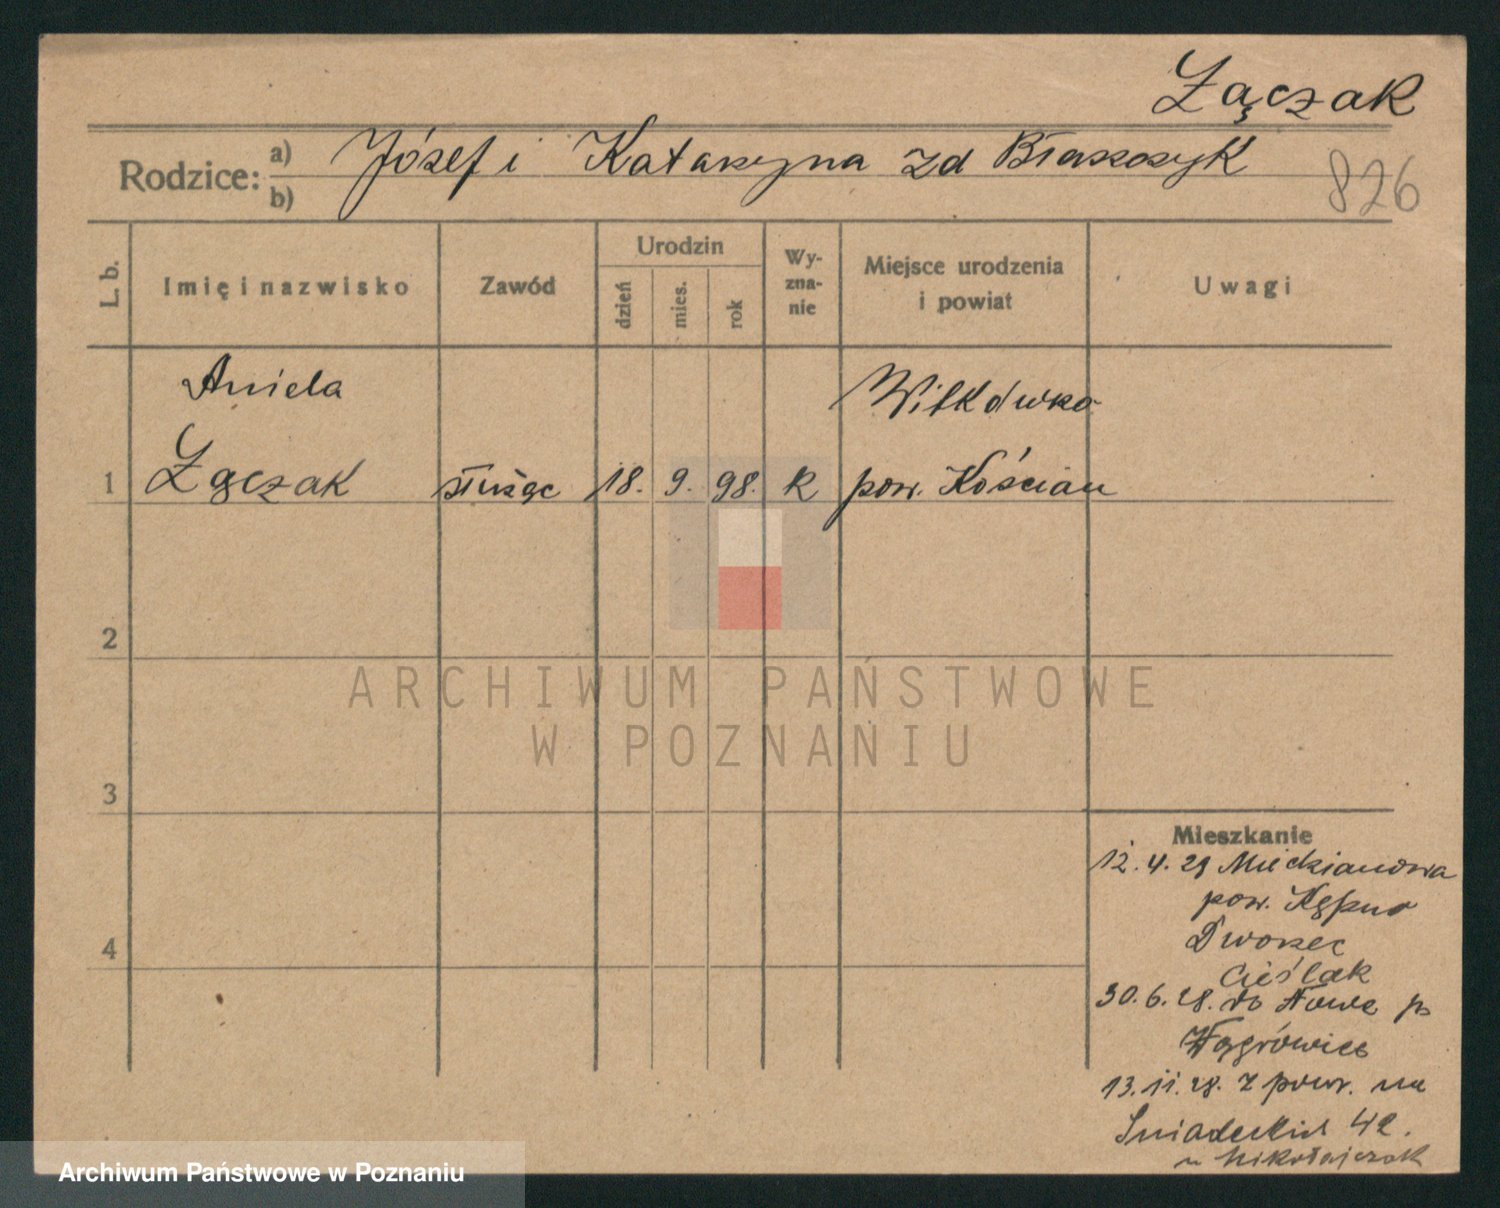 Łączak
Rodzice: a) Józef i Katarzyna zd Błaszczyk
b)
826
L. b.
Imię i nazwisko
Zawód
Urodzin
dzień
mies.
rok
Wy-
zna-
nie
Miejsce urodzenia
i powiat
Uwagi
Aniela
Wilkówko
1 Łączak służąc 18. 9. 98. R pow. Kościan
2
3
4
ARCHIWUM PAŃSTWOWE
W POZNANIU
Mieszkanie
12. 4. 28 Miedzianowa
pow. Kępno
Dworzec
Cieślak
30. 6. 28. do Nowe p
Wągrówiec
13. 11. 28. z powr. na
Śniadeckich 42.
u Mikołajczak
Archiwum Państwowe w Poznaniu